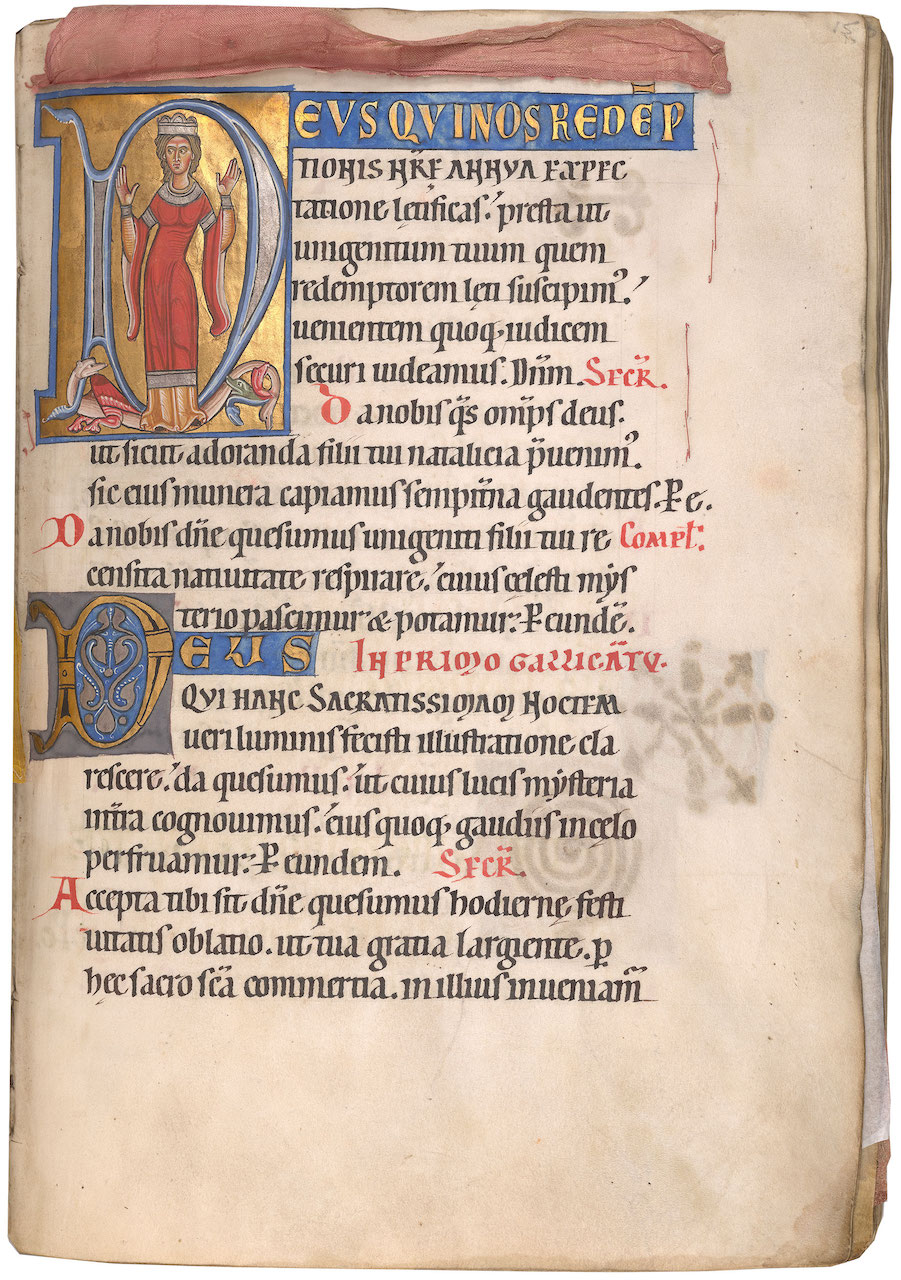 15
DEVS QVI NOS REDĒP
TIONIS NR̄E ANNVA EXPEC
tatione lętificas. presta ut
unigenitum tuum quem
redemptorem lęti suscipim᾽.
uenientem quoq, iudicem
securi uideamus. Dn̄m. Secr̄.
Da nobis q̄s om̄ps deus.
ut sicut adoranda filii tui natalicia p̄uenim᾽.
sic eius munera capiamus sempit̄na gaudentes. P e.
Da nobis dn̄e quesumus unigeniti filii tui re Compl̄.
censita natiuitate respirare. cuius celesti mys
terio pascimur & potamur. P eundē.
DEUS In primo gallicātu.
QVI HANC SACRATISSIMAM NOCTEM
ueri luminis fecisti illustratione cla
rescere. da quesumus. ut cuius lucis mysteria
int̄ra cognouimus. eius quoq, gaudiis in celo
perfruamur. P eundem. Secr̄.
Accepta tibi sit dn̄e quesumus hodiernę festi
uitatis oblatio. ut tua gratia largiente. ꝑ
hec sacro sc̄a commertia. in illius inueniam̄